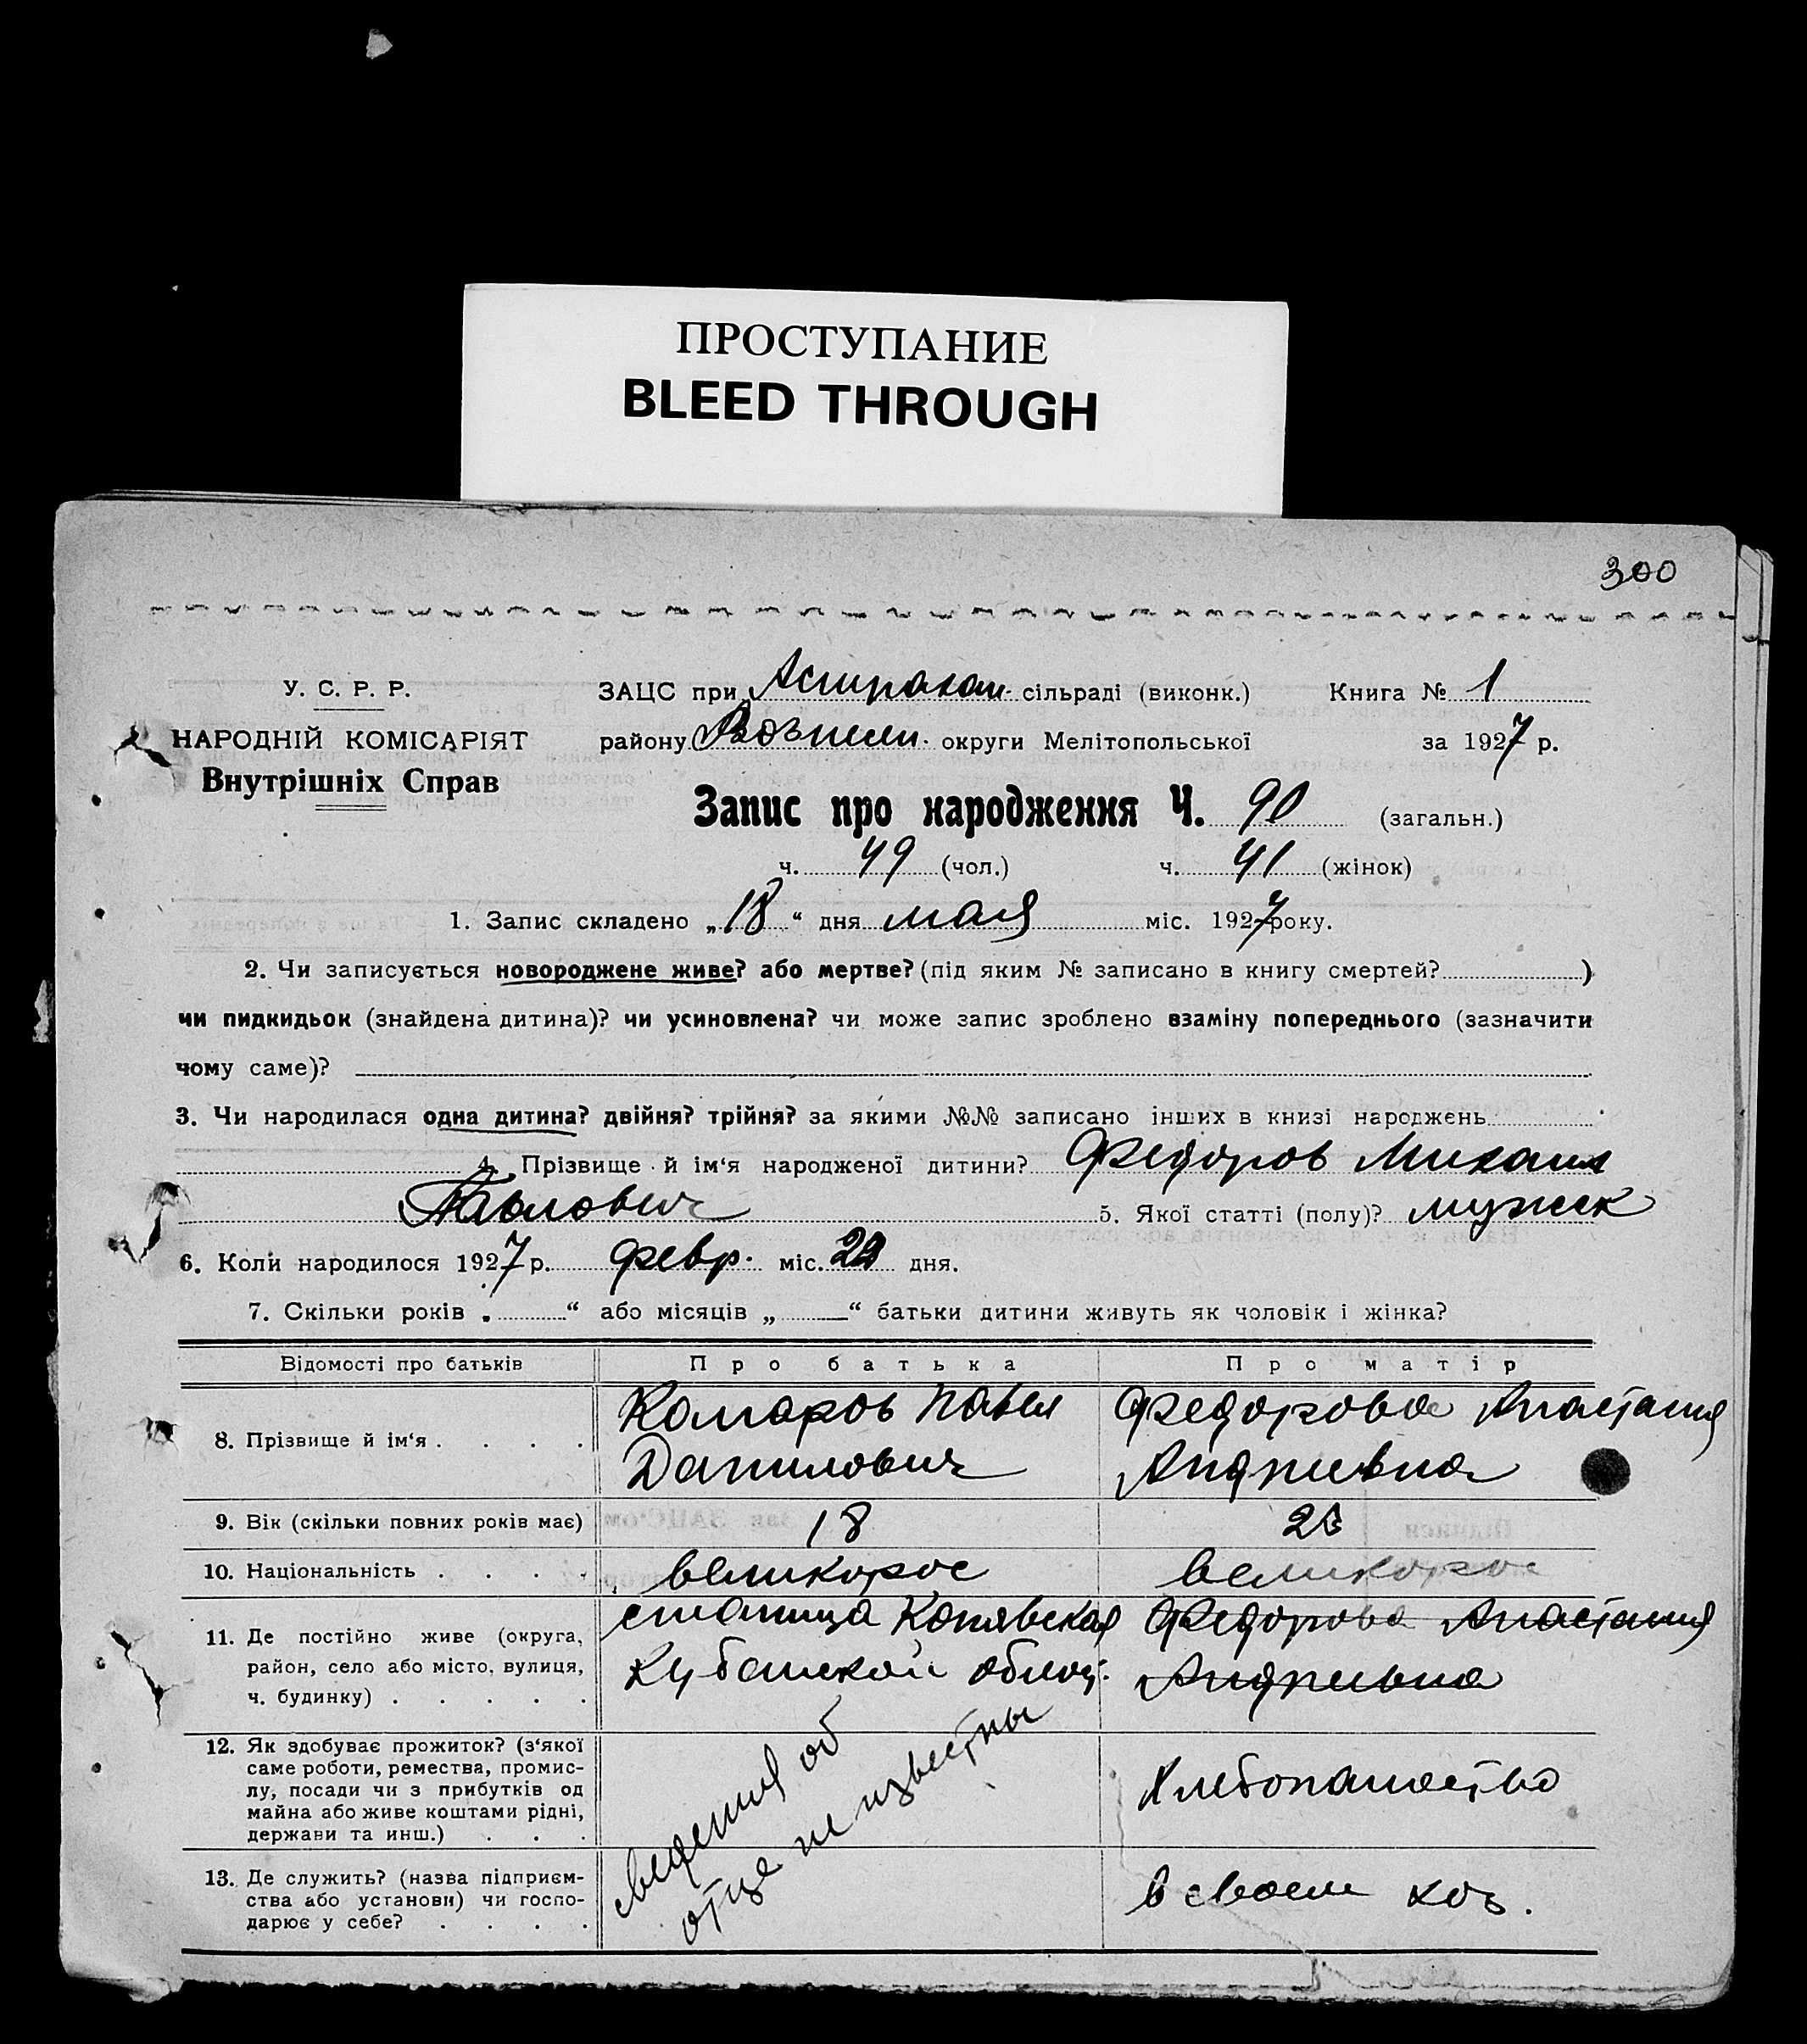 ПРОСТУПАНИЕ
BLEED THROUGH
300
У. С. Р. Р.
НАРОДНІЙ КОМІСАРІЯТ
Внутрішніх Справ
ЗАЦС при Астрахан. сільраді (виконк.) Книга № 1
району Вознесен. округи Мелітопольської за 1927 р.
Запис про народження Ч. 90 (загальн.)
ч. 49 (чол.) ч. 41 (жінок)
1. Запис складено „18“ дня мая міс. 1927 року.
2. Чи записується новороджене живе? або мертве? (під яким № записано в книгу смертей? )
чи пидкидьок (знайдена дитина)? чи усиновлена? чи може запис зроблено взаміну попереднього (зазначити
чому саме)?
3. Чи народилася одна дитина? двійня? трійня? за якими №№ записано інших в книзі народжень
4. Прізвище й ім‘я народженої дитини? Федоров Михаил
Павлович 5. Якої статті (полу)? мужск
6. Коли народилося 1927 р. февр. міс. дня.
7. Скільки років „ “ або місяців „ “ батьки дитини живуть як чоловік і жінка?
Відомості про батьків Про батька Про матір
8. Прізвище й ім‘я . . . . Комаров Павел Федорова Анастасия
Данилович Андриевна
9. Вік (скільки повних років має) 18
10. Національність . . . . великорос великорос
11. Де постійно живе (округа, район, село або місто, вулиця, ч. будинку) . . . . . станица
Кубанской област. Федорова Анастасия
Андриевна
12. Як здобуває прожиток? (з‘якої
саме роботи, ремества, промис-
лу, посади чи з прибутків од
майна або живе коштами рідні,
держави та инш.) . . . Хлебопашество
13. Де служить? (назва підприєм-
ства або установи) чи госпо-
дарює у себе? . . . . в своем хоз.
сведения об
отце не известны